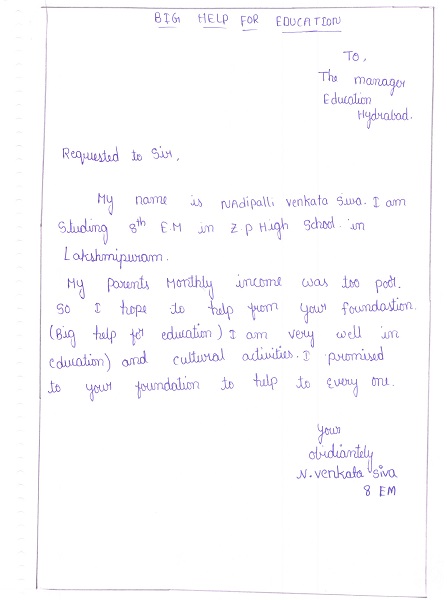 BIG HELP FOR EDUCATION
To,
The manager
Education
Hydrabad.
Requested to Sir,
My name is Nadipalli Venkata Siva. I am
Studing 8th E.M in Z.P High School. in
Lakshmipuram.
My parents Monthly income was too poor.
So I hope to help from your foundastion.
(Big help for education) I am very well in
education) and cultural activities. I promised
to your foundation to help to every one.
your
obidiantely
N. Venkata Siva
8 EM